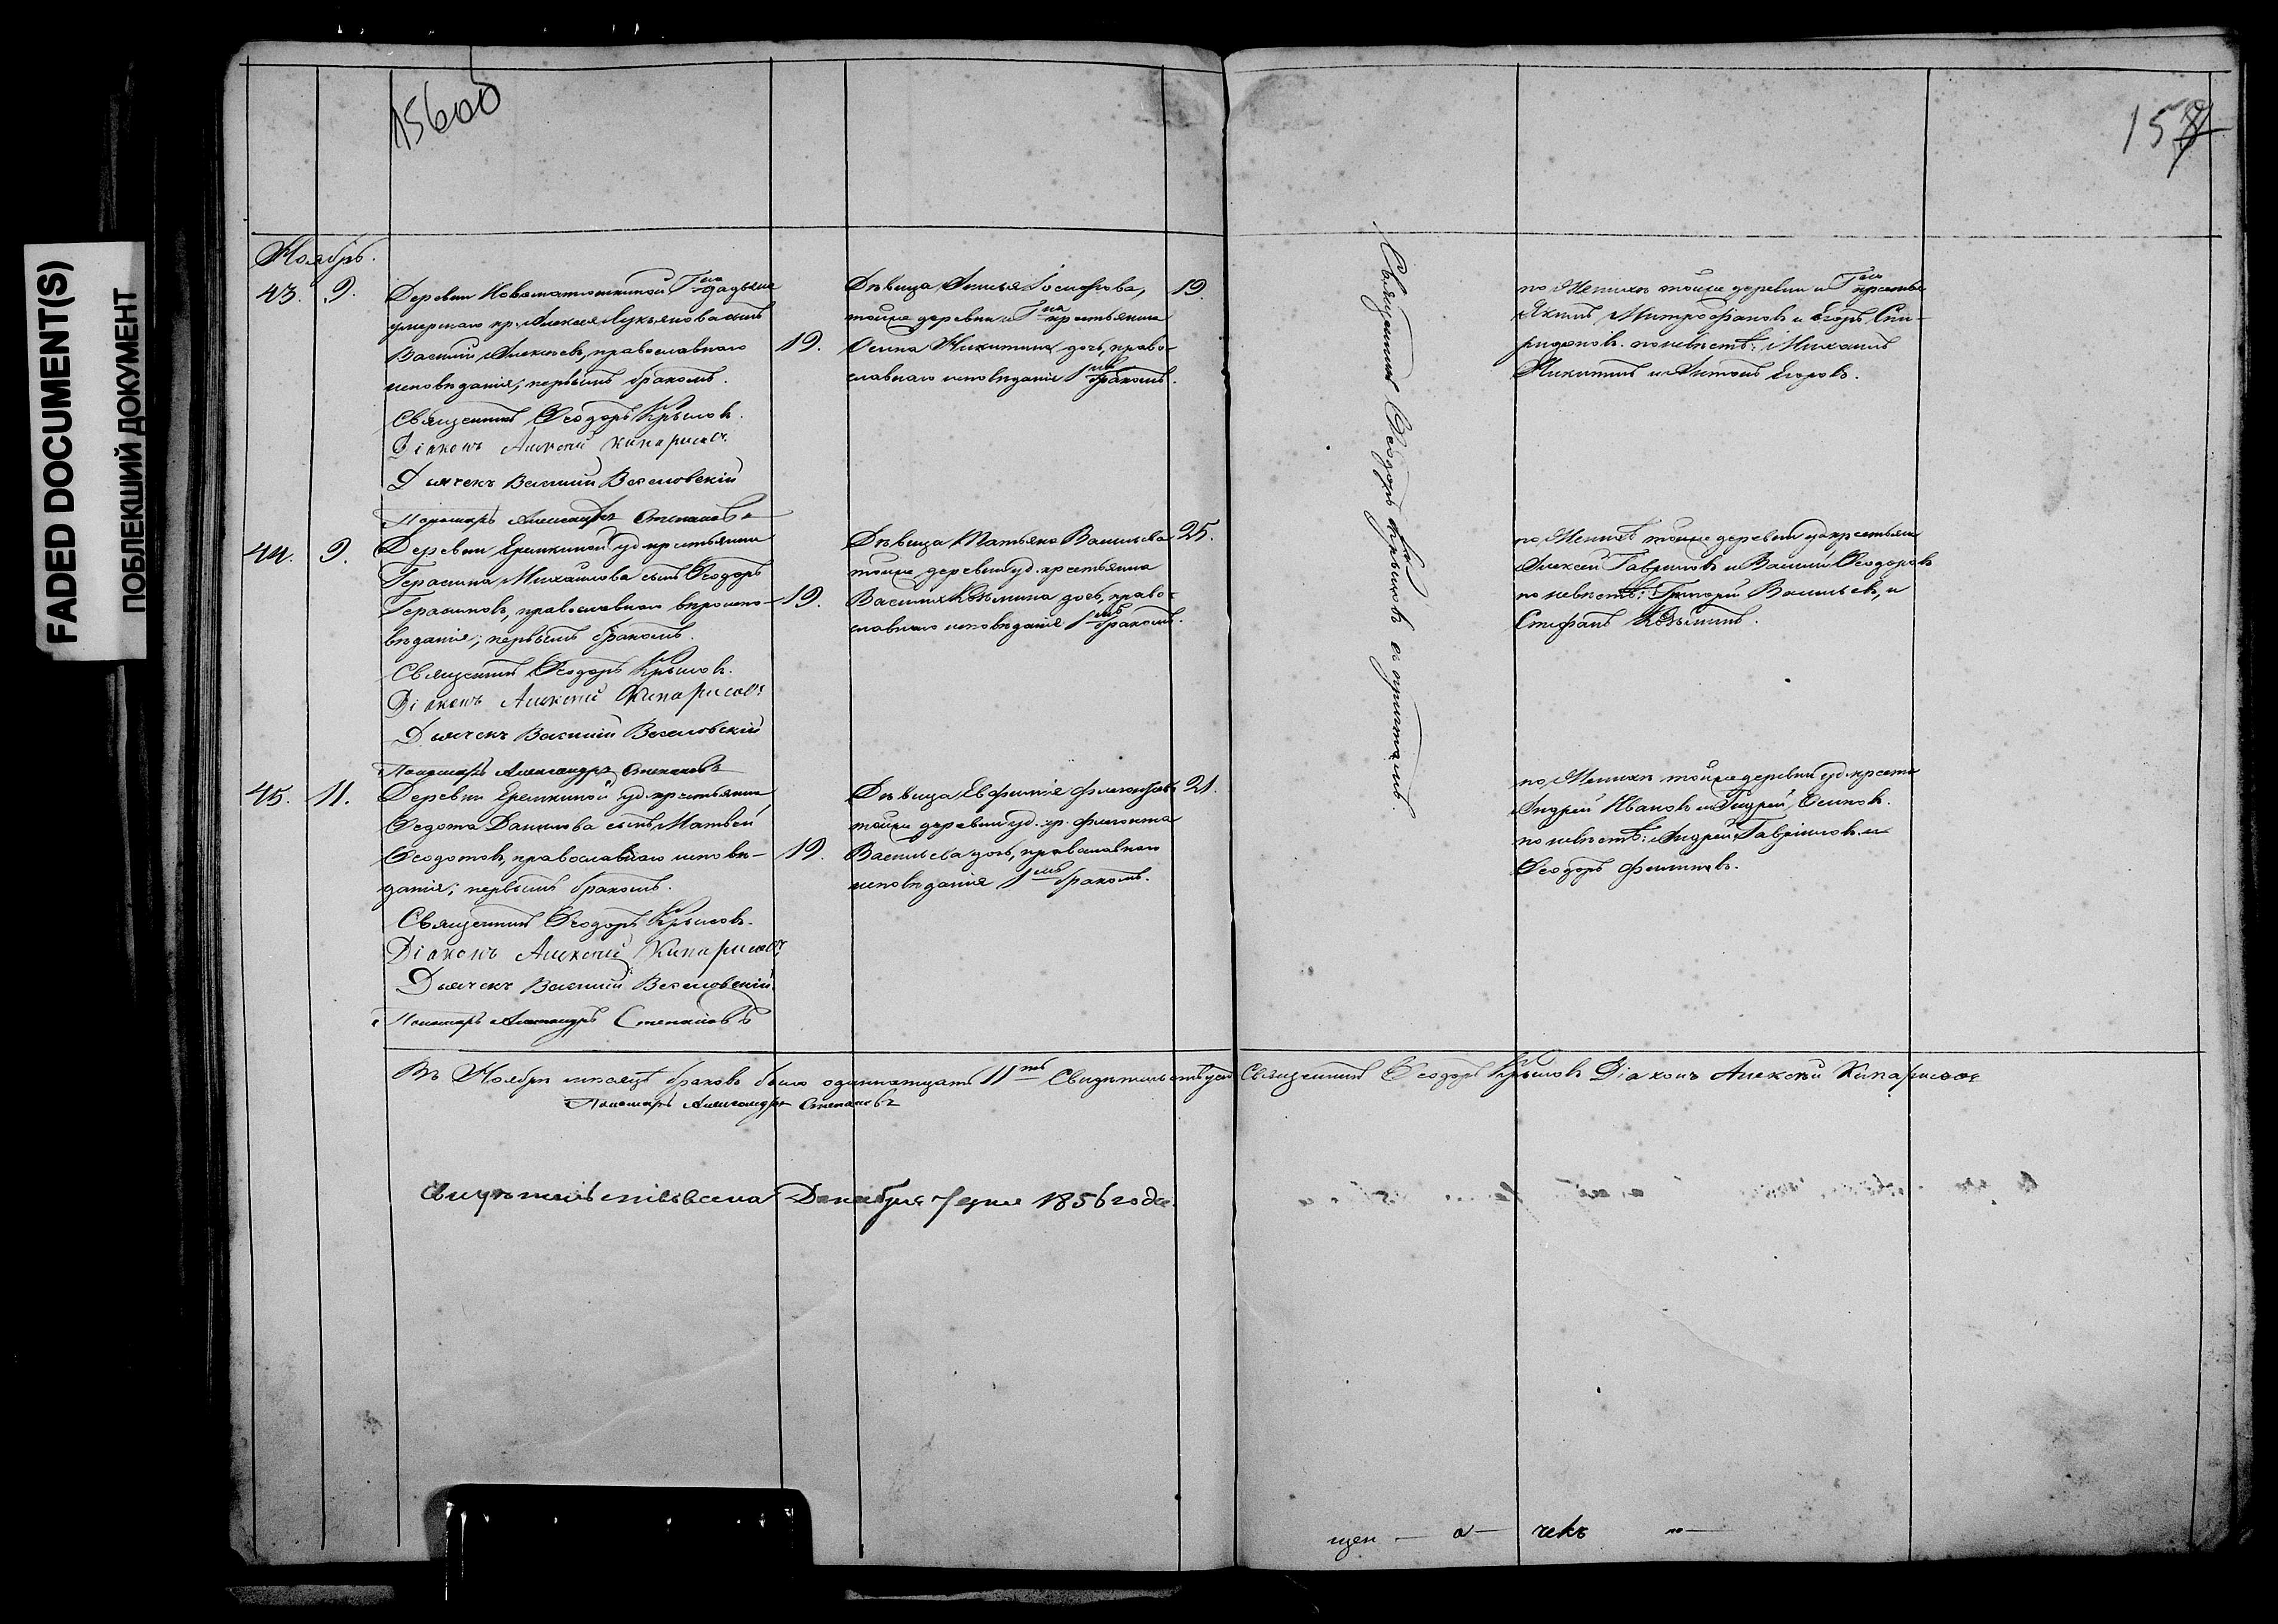 FADED DOCUMENT(S)
ПОБЛЕКШИЙ ДОКУМЕНТ
15600
157
Ноябрь.
43. 9.
Деревни Новоматюшкиной
умершаго кр. Алексея Лукьянова сынъ
Василий Алексѣевъ, православнаго
исповѣданія, первымъ бракомъ.
19.
Священникъ Ѳеодоръ Крыловъ.
Діаконъ Алексѣй Кипарисовъ
Дьячекъ Василий Веселовскій
Пономарь Александръ Степановъ
Дѣвица Іосифова,
тойже деревни крестьянина
Осипа Никитина дочь, право-
славнаго исповѣданія 1мъ бракомъ.
19.
по Женихѣ тойже деревни
Якимъ Митрофановъ и Егоръ Спи-
ридоновъ. по невѣстѣ: Михаилъ
Никитинъ и Антонъ Егоровъ.
44. 9.
Деревни Еремкиной уд. крестьянина
Герасима Михайлова сынъ Ѳеодоръ
Герасимовъ, православнаго вѣроиспо-
вѣданія; первымъ бракомъ.
19.
Священникъ Ѳеодоръ Крыловъ.
Діаконъ Алексѣй Кипарисовъ
Дьячекъ Василий Веселовскій
Пономарь Александръ Степановъ
Дѣвица Татьяна Васильева
тойже деревни уд. крестьянина
Василия Козьмина дочь, право-
славнаго исповѣданія 1мъ бракомъ.
25.
по Женихѣ тойже деревни уд. крестьяне
Алексей Гавриловъ и Василий Ѳеодоровъ
по невѣстѣ: Григорій Васильевъ, и
Стефанъ Козьминъ.
45. 11.
Деревни Еремкиной уд. крестьянина
Ѳедота Данилова сынъ Матвей
Ѳеодотовъ, православнаго исповѣ-
данія; первымъ бракомъ.
19.
Священникъ Ѳеодоръ Крыловъ.
Діаконъ Алексѣй Кипарисовъ
Дьячекъ Василий Веселовскій.
Пономарь Александръ Степановъ
Дѣвица Евфимія
тойже деревни уд. кр.
Васильева дочь, православнаго
исповѣданія 1мъ бракомъ.
21.
по Женихѣ тойже деревни уд. крестьяне
Андрей Ивановъ и Андрей Осиповъ.
по невѣстѣ: Андрей Гавриловъ и
Ѳеодоръ Филиповъ.
Священникъ Ѳеодоръ Крыловъ съ причтомъ
Въ Ноябрѣ мѣсяцѣ браковъ было одиннатцать 11ть Свидѣтельствуетъ Священникъ Ѳеодоръ Крыловъ Діаконъ Алексѣй Кипарисовъ
Пономарь Александръ Степановъ
Декабря 7 дня 1856 года.
щен — а — чекъ